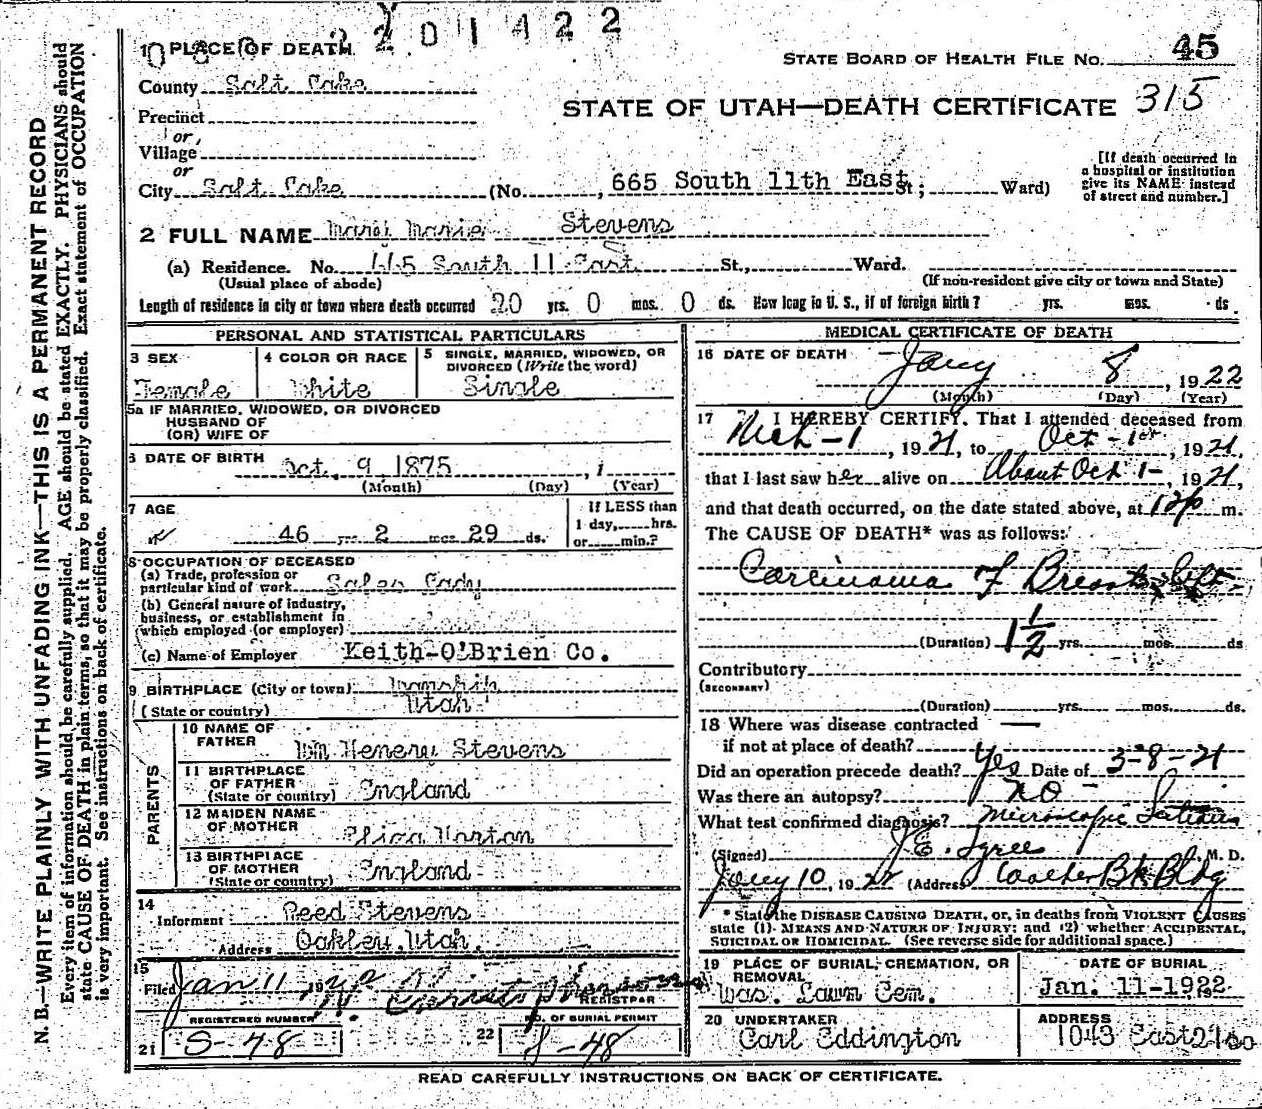 2201422
STATE BOARD OF HEALTH FILE NO. 45
315
STATE OF UTAH—DEATH CERTIFICATE
1 PLACE OF DEATH
County Salt Lake
Precinct
or,
Village
or
City Salt Lake (No. 665 South 11th East St; Ward)
[If death occurred in
a hospital or institution
give its NAME instead
of street and number.]
2 FULL NAME Mary Marie Stevens
(a) Residence. No. 665 South 11 East St., Ward.
(Usual place of abode) (If non-resident give city or town and State)
Length of residence in city or town where death occurred 20 yrs. 0 mos. 0 ds. How long in U. S., if of foreign birth? yrs. mos. ds.
PERSONAL AND STATISTICAL PARTICULARS
3 SEX
Female
4 COLOR OR RACE
White
5 SINGLE, MARRIED, WIDOWED, OR
DIVORCED (Write the word)
Single
5a IF MARRIED, WIDOWED, OR DIVORCED
HUSBAND OF
(OR) WIFE OF
6 DATE OF BIRTH Oct. 9 1875
(Month) (Day) (Year)
7 AGE
46 yrs. 2 mos. 29 ds.
If LESS than
1 day, hrs.
or min.?
8 OCCUPATION OF DECEASED
(a) Trade, profession or
particular kind of work Sales Lady
(b) General nature of industry,
business, or establishment in
which employed (or employer)
(c) Name of Employer Keith-O'Brien Co.
9 BIRTHPLACE (City or town) Wanship
(State or country) Utah
PARENTS
10 NAME OF
FATHER Wm Henery Stevens
11 BIRTHPLACE
OF FATHER
(State or country) England
12 MAIDEN NAME
OF MOTHER Eliza Horton
13 BIRTHPLACE
OF MOTHER
(State or country) England
14
Informant Reed Stevens
Address Oakley, Utah.
15
Filed Jan 11, 19
REGISTRAR
REGISTERED NUMBER
21 S-48
NO. OF BURIAL PERMIT
22 S-48
MEDICAL CERTIFICATE OF DEATH
16 DATE OF DEATH
Jany 8, 1922
(Month) (Day) (Year)
17 I HEREBY CERTIFY, That I attended deceased from
Mch-1, 1921, to Oct-1st, 1921,
that I last saw her alive on About Oct 1-, 1921,
and that death occurred, on the date stated above, at 12p m.
The CAUSE OF DEATH* was as follows:
Carcinoma of Breast, left
(Duration) 1 1/2 yrs. mos. ds
Contributory
(SECONDARY)
(Duration) yrs. mos. ds.
18 Where was disease contracted
if not at place of death?
Did an operation precede death? Yes Date of 3-8-21
Was there an autopsy? No -
What test confirmed diagnosis? Microscopic
(Signed) J.E. Tyree M. D.
Jany 10, 1922 (Address Walker Bk Bldg
* State the DISEASE CAUSING DEATH, or, in deaths from VIOLENT CAUSES
state (1) MEANS AND NATURE OF INJURY; and (2) whether ACCIDENTAL,
SUICIDAL OR HOMICIDAL. (See reverse side for additional space.)
19 PLACE OF BURIAL, CREMATION, OR
REMOVAL
Was. Lawn Cem.
DATE OF BURIAL
Jan. 11-1922
20 UNDERTAKER
Carl Eddington
ADDRESS
1043 East 21 so
READ CAREFULLY INSTRUCTIONS ON BACK OF CERTIFICATE.
N. B.—WRITE PLAINLY WITH UNFADING INK—THIS IS A PERMANENT RECORD
Every item of information should be carefully supplied. AGE should be stated EXACTLY. PHYSICIANS should
state CAUSE OF DEATH in plain terms, so that it may be properly classified. Exact statement of OCCUPATION
is very important. See instructions on back of certificate.